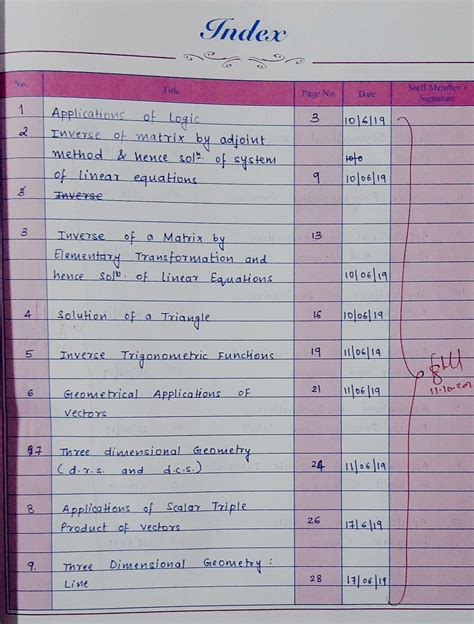 Index
No. Title Page No. Date Staff Member's Signature
1 Applications of Logic 3 10/6/19
2 Inverse of matrix by adjoint
method & hence solⁿ of system 10/0
of linear equations 9 10/06/19
3 Inverse
3 Inverse of a Matrix by 13
Elementary Transformation and
hence solⁿ. of Linear Equations 10/06/19
4 Solution of a Triangle 16 10/06/19
5 Inverse Trigonometric Functions 19 11/06/19
6 Geometrical Applications OF 21 11/06/19
vectors
7 Three dimensional Geometry
(d.r.s. and d.c.s.) 24 11/06/19
8 Applications of Scalar Triple
Product of vectors 26 17/6/19
9. Three Dimensional Geometry :
Line 28 17/06/19